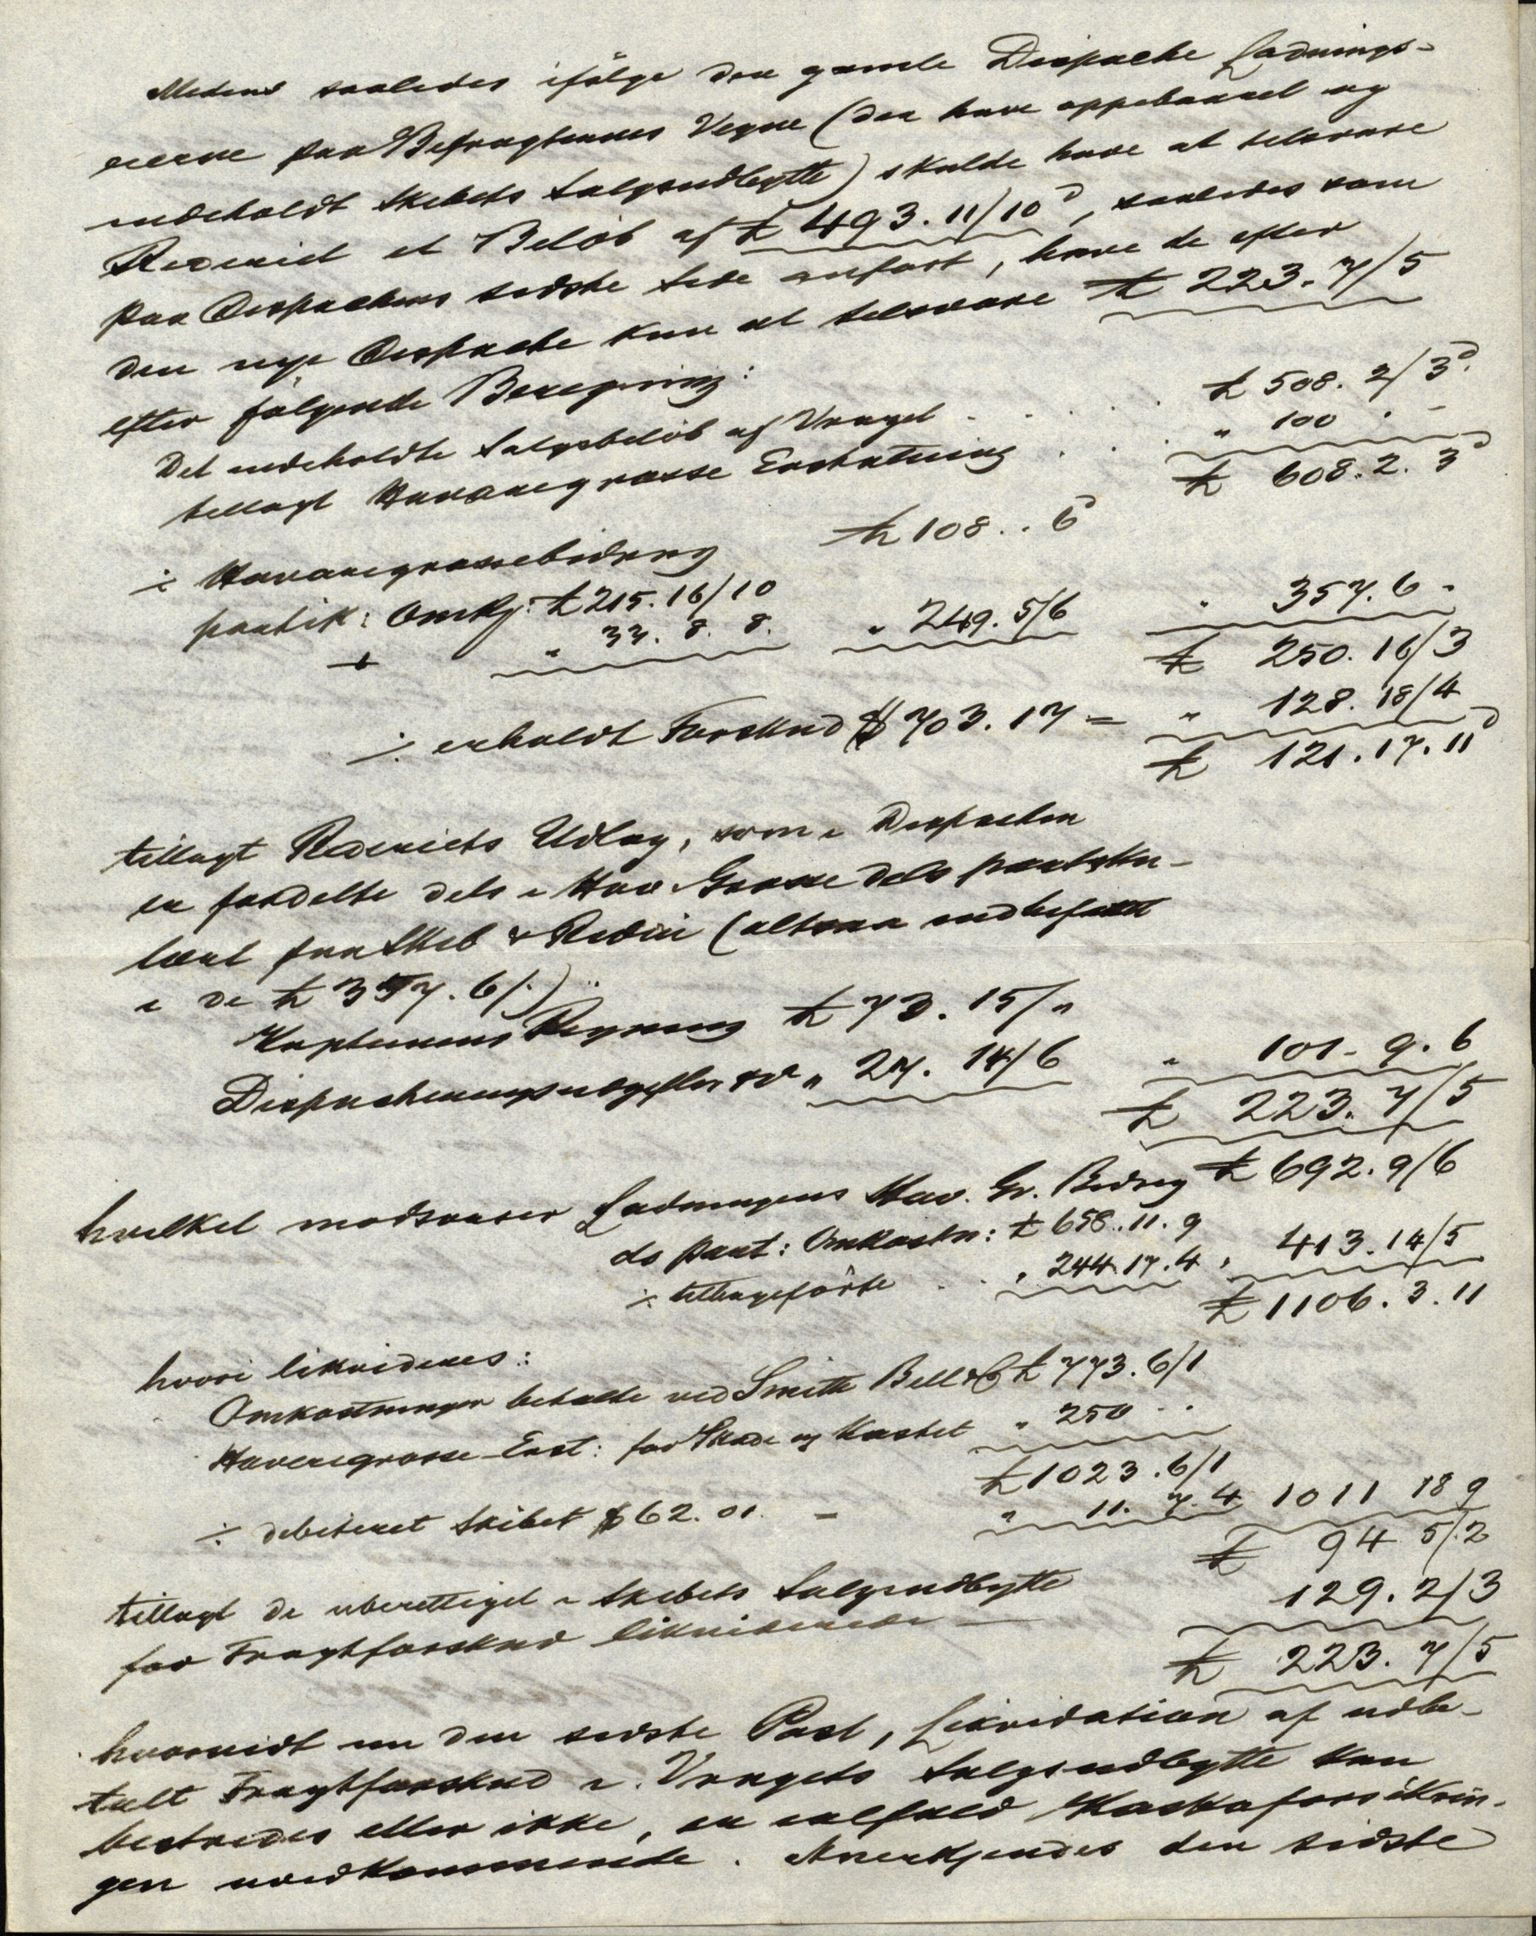 Medens saaledes ifølge den gamle Dispache Ladnings-
eierne paa Befragternes Vegne (der have oppebaaret og
indeholdt Skibets Salgsudbytte) skulde have at tilsvare
Rederiet et Beløb af £ 493. 11/10d, saaledes som
paa Dispachens sidste Side anført, have de efter
den nye Dispache kun at tilsvare £ 223. 7/5
efter følgende Beregning:
Det indeholdte Salgsbeløb af Vraget . . . . . £ 508. 2/3d.
tillagt Havariegrosse Erstatning . . . " 100 . -
£ 608. 2. 3d
÷ Havariegrossebidrag £ 108 . . 6d
partik: Omkj: £ 215. 16/10
+ " 33. 8. 8. " 249. 5/6 " 357. 6 "
£ 250. 16/3
÷ erholdt Forskud $ 703. 17 = " 128. 18/4
£ 121. 17. 11d
tillagt Rederiets Udlæg, som i Dispachen
er fordelte dels i Hav. Grosse dels partiku-
lært paa Skib & Rederi (altsaa indbefattet
i de £ 357. 6/.)
Kapteinens Regning £ 73. 15/"
Dispacheringsudgifter &c " 27. 14/6 " 101 - 9. 6
£ 223. 7/5
hvilket modsvarer Ladningens Hav. Gr. Bidrag £ 692. 9/6
do part: Omkostn: £ 658. 11. 9
÷ tilbageførte . . " 244. 17. 4 " 413. 14/5
£ 1106. 3. 11
hvori likvideres:
Omkostninger betalte ved Smith Bell & C £ 773. 6/1
Havariegrosse-Erst: for Skade og Kastet " 250 . .
£ 1023. 6/1
÷ debiteret Skibet $ 62. 01. = " 11. 7. 4 1011 18 9
£ 94 5/2
tillagt de uberettiget i Skibets Salgsudbytte
for Fragtforskud likviderede — 129. 2/3
£ 223. 7/5
hvorvidt nu den sidste Post, Likvidation af udbe-
talt Fragtforskud i Vragets Salgsudbytte kan
bestrides eller ikke, er ialfald Kaskoforsikrin-
gen uvedkommende. Anerkjendes den sidste